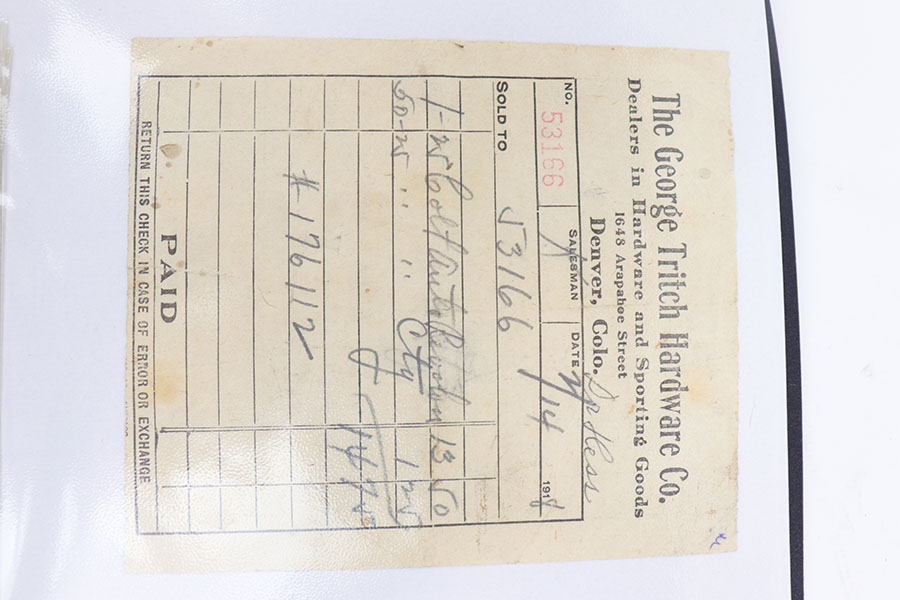 The George Tritch Hardware Co.
Dealers in Hardware and Sporting Goods
1648 Arapahoe Street
Denver, Colo.
No. 53166 SALESMAN DATE /14 191
SOLD TO 53166
1- Colt Auto 13 50
50- " " Ctg 1
14
#176112
PAID
RETURN THIS CHECK IN CASE OF ERROR OR EXCHANGE